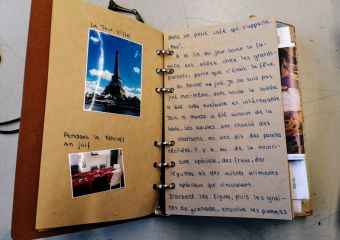 La Tour Eiffel
Pendant le Nouvel
An juif
dans un petit café qui s'appelle
"Néo".
À la fin du jour toute la fa-
mille est allée chez les grands-
parents, parce que c'était la fête
du Nouvel An juif. Je ne suis pas
juif moi-même, donc toute la soirée
a été très exaltante et intéressante.
Tout le monde a été autour de la
table. Les jeunes ont chanté des
chansons, ou ont dit des paroles
récitées. Il y a eu de la nourri-
ture spéciale, des fruits, des
légumes et des autres aliments
spéciaux qui circulaient.
D'abord les figues, puis les grai-
nes de grenade, ensuite les pommes